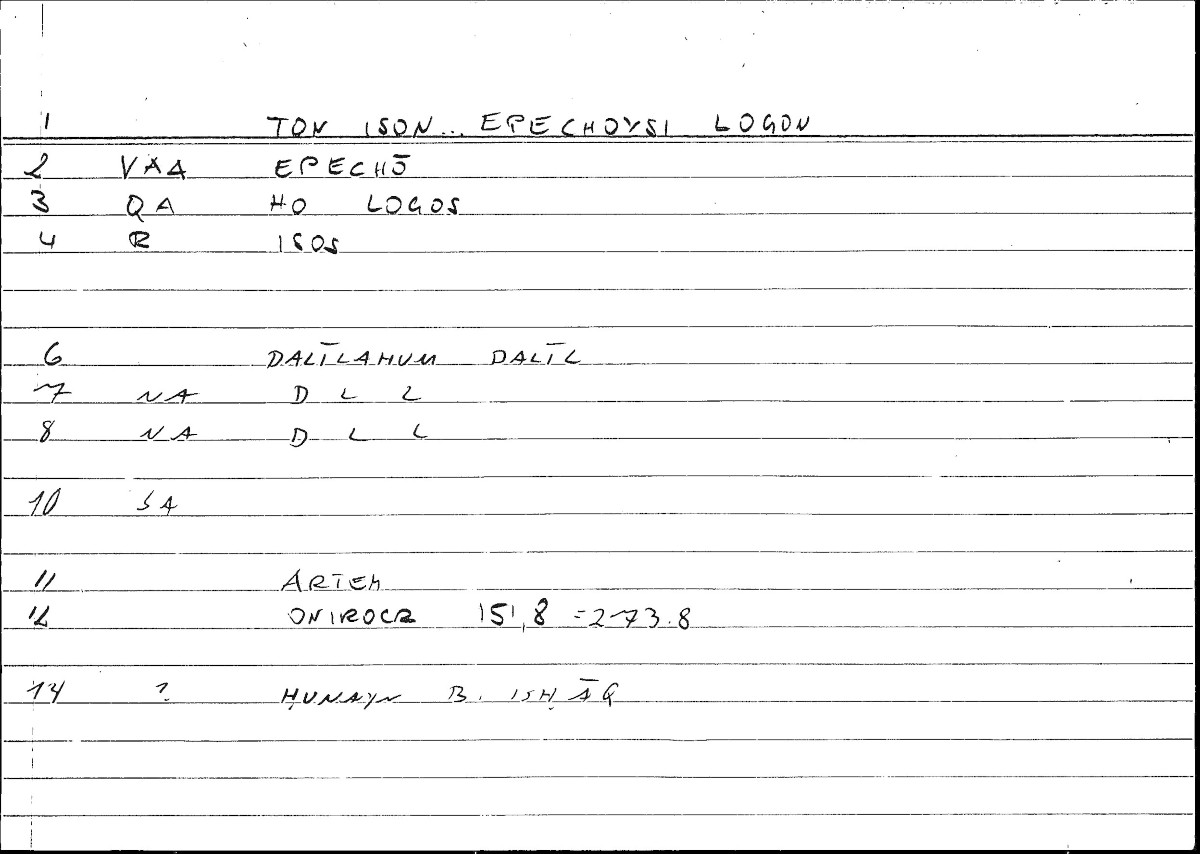 1 TON ISON... EPECHOYSI LOGON
2 VAA EPECHŌ
3 QA HO LOGOS
4 R ISOS
6 DALĪLAHUM DALĪL
7 NA D L L
8 NA D L L
10 SA
11 ARTEM
12 ONIROCR 151,8 = 273.8
14 ? ḤUNAYN B. ISḤĀQ